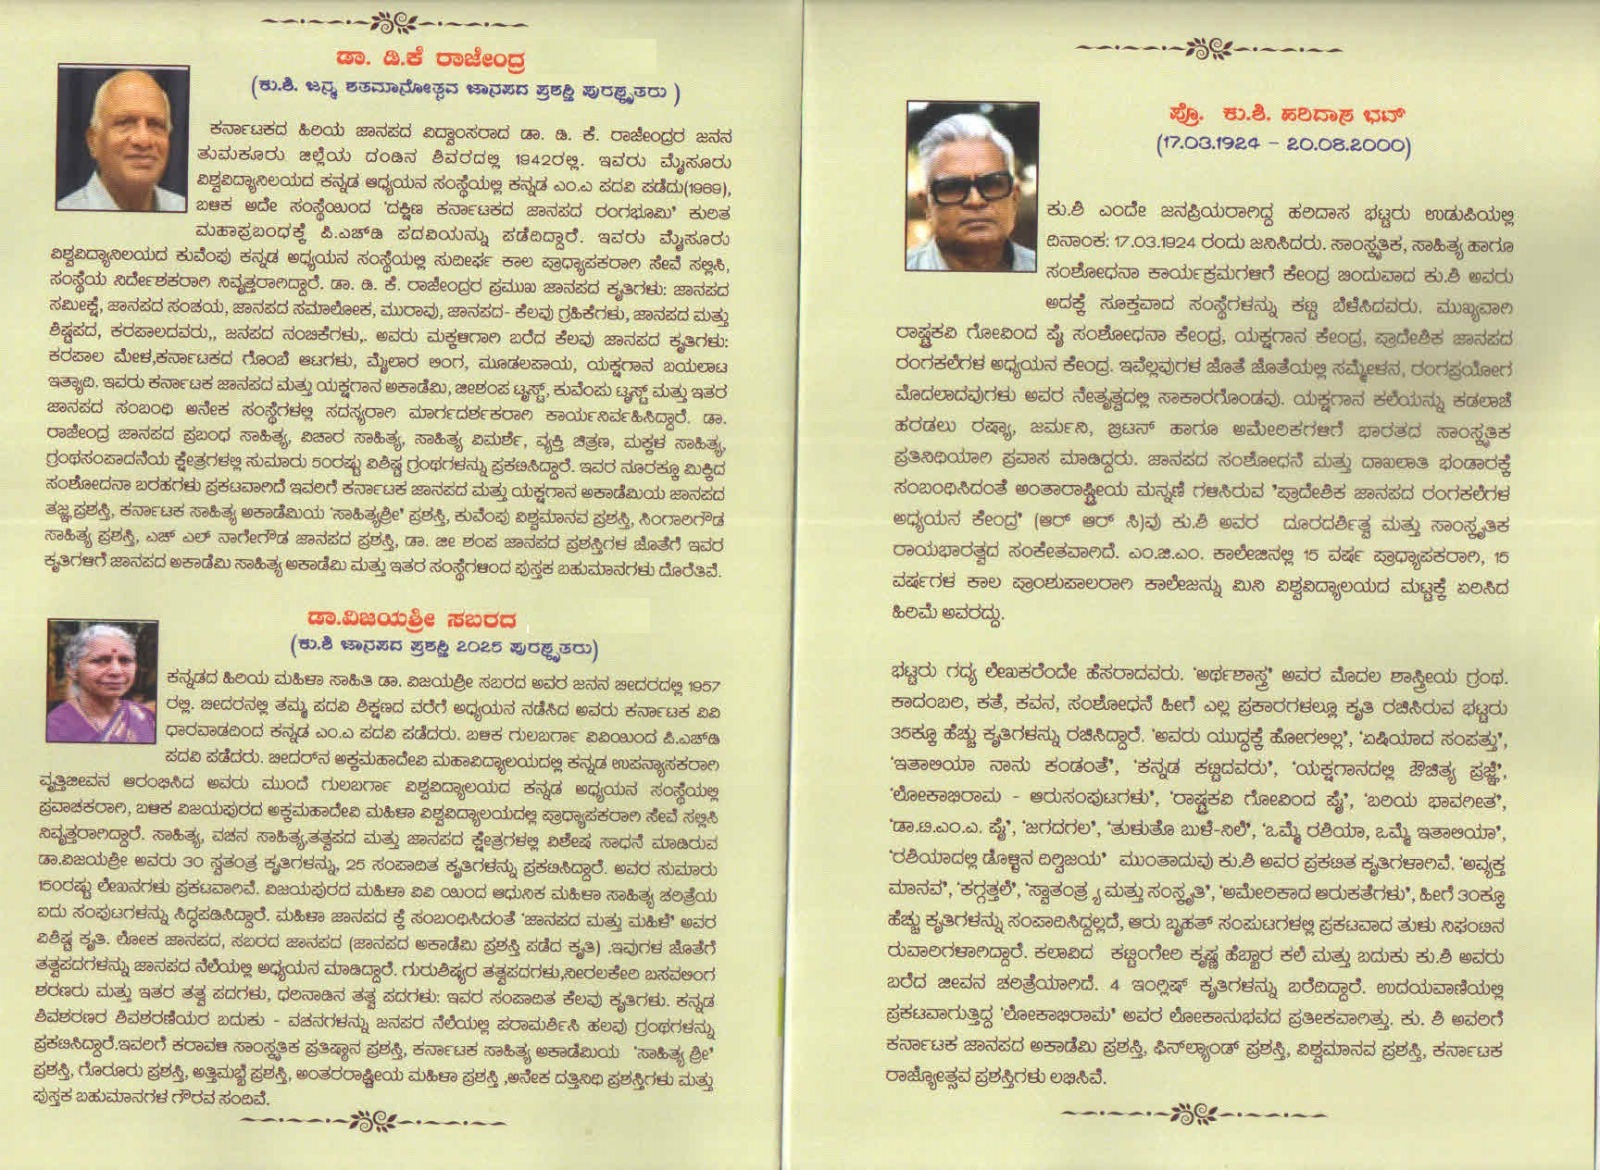 ಡಾ. ಡಿ.ಕೆ ರಾಜೇಂದ್ರ
(ಕು.ಶಿ. ಜನ್ಮ ಶತಮಾನೋತ್ಸವ ಜಾನಪದ ಪ್ರಶಸ್ತಿ ಪುರಸ್ಕೃತರು )
ಕರ್ನಾಟಕದ ಹಿರಿಯ ಜಾನಪದ ವಿದ್ವಾಂಸರಾದ ಡಾ. ಡಿ. ಕೆ. ರಾಜೇಂದ್ರರ ಜನನ
ತುಮಕೂರು ಜಿಲ್ಲೆಯ ದಂಡಿನ ಶಿವರದಲ್ಲಿ 1942ರಲ್ಲಿ. ಇವರು ಮೈಸೂರು
ವಿಶ್ವವಿದ್ಯಾನಿಲಯದ ಕನ್ನಡ ಆಧ್ಯಯನ ಸಂಸ್ಥೆಯಲ್ಲಿ ಕನ್ನಡ ಎಂ.ಎ ಪದವಿ ಪಡೆದು(1969),
ಬಳಿಕ ಅದೇ ಸಂಸ್ಥೆಯಿಂದ 'ದಕ್ಷಿಣ ಕರ್ನಾಟಕದ ಜಾನಪದ ರಂಗಭೂಮಿ' ಕುರಿತ
ಮಹಾಪ್ರಬಂಧಕ್ಕೆ ಪಿ.ಎಚ್‌ಡಿ ಪದವಿಯನ್ನು ಪಡೆದಿದ್ದಾರೆ. ಇವರು ಮೈಸೂರು
ವಿಶ್ವವಿದ್ಯಾನಿಲಯದ ಕುವೆಂಪು ಕನ್ನಡ ಅಧ್ಯಯನ ಸಂಸ್ಥೆಯಲ್ಲಿ ಸುದೀರ್ಘ ಕಾಲ ಪ್ರಾಧ್ಯಾಪಕರಾಗಿ ಸೇವೆ ಸಲ್ಲಿಸಿ,
ಸಂಸ್ಥೆಯ ನಿರ್ದೇಶಕರಾಗಿ ನಿವೃತ್ತರಾಗಿದ್ದಾರೆ. ಡಾ. ಡಿ. ಕೆ. ರಾಜೇಂದ್ರರ ಪ್ರಮುಖ ಜಾನಪದ ಕೃತಿಗಳು: ಜಾನಪದ
ಸಮೀಕ್ಷೆ, ಜಾನಪದ ಸಂಚಯ, ಜಾನಪದ ಸಮಾಲೋಕ, ಮುರಾವು, ಜಾನಪದ- ಕೆಲವು ಗ್ರಹಿಕೆಗಳು, ಜಾನಪದ ಮತ್ತು
ಶಿಷ್ಟಪದ, ಕರಪಾಲದವರು,, ಜನಪದ ನಂಬಿಕೆಗಳು,. ಅವರು ಮಕ್ಕಳಿಗಾಗಿ ಬರೆದ ಕೆಲವು ಜಾನಪದ ಕೃತಿಗಳು:
ಕರಪಾಲ ಮೇಳ,ಕರ್ನಾಟಕದ ಗೊಂಬೆ ಆಟಗಳು, ಮೈಲಾರ ಲಿಂಗ, ಮೂಡಲಪಾಯ, ಯಕ್ಷಗಾನ ಬಯಲಾಟ
ಇತ್ಯಾದಿ. ಇವರು ಕರ್ನಾಟಕ ಜಾನಪದ ಮತ್ತು ಯಕ್ಷಗಾನ ಅಕಾಡೆಮಿ, ಜೀಶಂಪ ಟ್ರಸ್ಟ್, ಕುವೆಂಪು ಟ್ರಸ್ಟ್ ಮತ್ತು ಇತರ
ಜಾನಪದ ಸಂಬಂಧಿ ಅನೇಕ ಸಂಸ್ಥೆಗಳಲ್ಲಿ ಸದಸ್ಯರಾಗಿ ಮಾರ್ಗದರ್ಶಕರಾಗಿ ಕಾರ್ಯನಿರ್ವಹಿಸಿದ್ದಾರೆ. ಡಾ.
ರಾಜೇಂದ್ರ ಜಾನಪದ ಪ್ರಬಂಧ ಸಾಹಿತ್ಯ, ವಿಚಾರ ಸಾಹಿತ್ಯ, ಸಾಹಿತ್ಯ ವಿಮರ್ಶೆ, ವ್ಯಕ್ತಿ ಚಿತ್ರಣ, ಮಕ್ಕಳ ಸಾಹಿತ್ಯ,
ಗ್ರಂಥಸಂಪಾದನೆಯ ಕ್ಷೇತ್ರಗಳಲ್ಲಿ ಸುಮಾರು 50ರಷ್ಟು ವಿಶಿಷ್ಟ ಗ್ರಂಥಗಳನ್ನು ಪ್ರಕಟಿಸಿದ್ದಾರೆ. ಇವರ ನೂರಕ್ಕೂ ಮಿಕ್ಕಿದ
ಸಂಶೋದನಾ ಬರಹಗಳು ಪ್ರಕಟವಾಗಿದೆ ಇವರಿಗೆ ಕರ್ನಾಟಕ ಜಾನಪದ ಮತ್ತು ಯಕ್ಷಗಾನ ಅಕಾಡೆಮಿಯ ಜಾನಪದ
ತಜ್ಞ ಪ್ರಶಸ್ತಿ, ಕರ್ನಾಟಕ ಸಾಹಿತ್ಯ ಅಕಾಡೆಮಿಯ 'ಸಾಹಿತ್ಯಶ್ರೀ' ಪ್ರಶಸ್ತಿ, ಕುವೆಂಪು ವಿಶ್ವಮಾನವ ಪ್ರಶಸ್ತಿ, ಸಿಂಗಾರಿಗೌಡ
ಸಾಹಿತ್ಯ ಪ್ರಶಸ್ತಿ, ಎಚ್ ಎಲ್ ನಾಗೇಗೌಡ ಜಾನಪದ ಪ್ರಶಸ್ತಿ, ಡಾ. ಜೀ ಶಂಪ ಜಾನಪದ ಪ್ರಶಸ್ತಿಗಳ ಜೊತೆಗೆ ಇವರ
ಕೃತಿಗಳಿಗೆ ಜಾನಪದ ಅಕಾಡೆಮಿ ಸಾಹಿತ್ಯ ಅಕಾಡೆಮಿ ಮತ್ತು ಇತರ ಸಂಸ್ಥೆಗಳಿಂದ ಪುಸ್ತಕ ಬಹುಮಾನಗಳು ದೊರೆತಿವೆ.
ಡಾ.ವಿಜಯಶ್ರೀ ಸಬರದ
(ಕು.ಶಿ ಜಾನಪದ ಪ್ರಶಸ್ತಿ 2025 ಪುರಸ್ಕೃತರು)
ಕನ್ನಡದ ಹಿರಿಯ ಮಹಿಳಾ ಸಾಹಿತಿ ಡಾ. ವಿಜಯಶ್ರೀ ಸಬರದ ಅವರ ಜನನ ಬೀದರದಲ್ಲಿ 1957
ರಲ್ಲಿ. ಬೀದರನಲ್ಲಿ ತಮ್ಮ ಪದವಿ ಶಿಕ್ಷಣದ ವರೆಗೆ ಅಧ್ಯಯನ ನಡೆಸಿದ ಅವರು ಕರ್ನಾಟಕ ವಿವಿ
ಧಾರವಾಡದಿಂದ ಕನ್ನಡ ಎಂ.ಎ ಪದವಿ ಪಡೆದರು. ಬಳಿಕ ಗುಲಬರ್ಗಾ ವಿವಿಯಿಂದ ಪಿ.ಎಚ್‌ಡಿ
ಪದವಿ ಪಡೆದರು. ಬೀದರ್‌ನ ಅಕ್ಕಮಹಾದೇವಿ ಮಹಾವಿದ್ಯಾಲಯದಲ್ಲಿ ಕನ್ನಡ ಉಪನ್ಯಾಸಕರಾಗಿ
ವೃತ್ತಿಜೀವನ ಆರಂಭಿಸಿದ ಅವರು ಮುಂದೆ ಗುಲಬರ್ಗಾ ವಿಶ್ವವಿದ್ಯಾಲಯದ ಕನ್ನಡ ಅಧ್ಯಯನ ಸಂಸ್ಥೆಯಲ್ಲಿ
ಪ್ರವಾಚಕರಾಗಿ, ಬಳಿಕ ವಿಜಯಪುರದ ಅಕ್ಕಮಹಾದೇವಿ ಮಹಿಳಾ ವಿಶ್ವವಿದ್ಯಾಲಯದಲ್ಲಿ ಪ್ರಾಧ್ಯಾಪಕರಾಗಿ ಸೇವೆ ಸಲ್ಲಿಸಿ
ನಿವೃತ್ತರಾಗಿದ್ದಾರೆ. ಸಾಹಿತ್ಯ, ವಚನ ಸಾಹಿತ್ಯ,ತತ್ವಪದ ಮತ್ತು ಜಾನಪದ ಕ್ಷೇತ್ರಗಳಲ್ಲಿ ವಿಶೇಷ ಸಾಧನೆ ಮಾಡಿರುವ
ಡಾ.ವಿಜಯಶ್ರೀ ಅವರು 30 ಸ್ವತಂತ್ರ ಕೃತಿಗಳನ್ನು, 25 ಸಂಪಾದಿತ ಕೃತಿಗಳನ್ನು ಪ್ರಕಟಿಸಿದ್ದಾರೆ. ಅವರ ಸುಮಾರು
150ರಷ್ಟು ಲೇಖನಗಳು ಪ್ರಕಟವಾಗಿವೆ. ವಿಜಯಪುರದ ಮಹಿಳಾ ವಿವಿ ಯಿಂದ ಆಧುನಿಕ ಮಹಿಳಾ ಸಾಹಿತ್ಯ ಚರಿತ್ರೆಯ
ಐದು ಸಂಪುಟಗಳನ್ನು ಸಿದ್ಧಪಡಿಸಿದ್ದಾರೆ. ಮಹಿಳಾ ಜಾನಪದ ಕ್ಕೆ ಸಂಬಂಧಿಸಿದಂತೆ 'ಜಾನಪದ ಮತ್ತು ಮಹಿಳೆ' ಅವರ
ವಿಶಿಷ್ಟ ಕೃತಿ. ಲೋಕ ಜಾನಪದ, ಸಬರದ ಜಾನಪದ (ಜಾನಪದ ಅಕಾಡೆಮಿ ಪ್ರಶಸ್ತಿ ಪಡೆದ ಕೃತಿ) .ಇವುಗಳ ಜೊತೆಗೆ
ತತ್ವಪದಗಳನ್ನು ಜಾನಪದ ನೆಲೆಯಲ್ಲಿ ಅಧ್ಯಯನ ಮಾಡಿದ್ದಾರೆ. ಗುರುಶಿಷ್ಯರ ತತ್ವಪದಗಳು,ನೀರಲಕೇರಿ ಬಸವಲಿಂಗ
ಶರಣರು ಮತ್ತು ಇತರ ತತ್ವ ಪದಗಳು, ಧರಿನಾಡಿನ ತತ್ವ ಪದಗಳು: ಇವರ ಸಂಪಾದಿತ ಕೆಲವು ಕೃತಿಗಳು. ಕನ್ನಡ
ಶಿವಶರಣರ ಶಿವಶರಣೆಯರ ಬದುಕು - ವಚನಗಳನ್ನು ಜನಪರ ನೆಲೆಯಲ್ಲಿ ಪರಾಮರ್ಶಿಸಿ ಹಲವು ಗ್ರಂಥಗಳನ್ನು
ಪ್ರಕಟಿಸಿದ್ದಾರೆ.ಇವರಿಗೆ ಕರಾವಳಿ ಸಾಂಸ್ಕೃತಿಕ ಪ್ರತಿಷ್ಠಾನ ಪ್ರಶಸ್ತಿ, ಕರ್ನಾಟಕ ಸಾಹಿತ್ಯ ಅಕಾಡೆಮಿಯ 'ಸಾಹಿತ್ಯ ಶ್ರೀ'
ಪ್ರಶಸ್ತಿ, ಗೊರೂರು ಪ್ರಶಸ್ತಿ, ಅತ್ತಿಮಬ್ಬೆ ಪ್ರಶಸ್ತಿ, ಅಂತರರಾಷ್ಟ್ರೀಯ ಮಹಿಳಾ ಪ್ರಶಸ್ತಿ ,ಅನೇಕ ದತ್ತಿನಿಧಿ ಪ್ರಶಸ್ತಿಗಳು ಮತ್ತು
ಪುಸ್ತಕ ಬಹುಮಾನಗಳ ಗೌರವ ಸಂದಿವೆ.
ಪ್ರೊ. ಕು.ಶಿ. ಹರಿದಾಸ ಭಟ್
(17.03.1924 - 20.08.2000)
ಕು.ಶಿ ಎಂದೇ ಜನಪ್ರಿಯರಾಗಿದ್ದ ಹರಿದಾಸ ಭಟ್ಟರು ಉಡುಪಿಯಲ್ಲಿ
ದಿನಾಂಕ: 17.03.1924 ರಂದು ಜನಿಸಿದರು. ಸಾಂಸ್ಕೃತಿಕ, ಸಾಹಿತ್ಯ ಹಾಗೂ
ಸಂಶೋಧನಾ ಕಾರ್ಯಕ್ರಮಗಳಿಗೆ ಕೇಂದ್ರ ಬಿಂದುವಾದ ಕು.ಶಿ ಅವರು
ಅದಕ್ಕೆ ಸೂಕ್ತವಾದ ಸಂಸ್ಥೆಗಳನ್ನು ಕಟ್ಟಿ ಬೆಳೆಸಿದವರು. ಮುಖ್ಯವಾಗಿ
ರಾಷ್ಟ್ರಕವಿ ಗೋವಿಂದ ಪೈ ಸಂಶೋಧನಾ ಕೇಂದ್ರ, ಯಕ್ಷಗಾನ ಕೇಂದ್ರ, ಪ್ರಾದೇಶಿಕ ಜಾನಪದ
ರಂಗಕಲೆಗಳ ಅಧ್ಯಯನ ಕೇಂದ್ರ. ಇವೆಲ್ಲವುಗಳ ಜೊತೆ ಜೊತೆಯಲ್ಲಿ ಸಮ್ಮೇಳನ, ರಂಗಪ್ರಯೋಗ
ಮೊದಲಾದವುಗಳು ಅವರ ನೇತೃತ್ವದಲ್ಲಿ ಸಾಕಾರಗೊಂಡವು. ಯಕ್ಷಗಾನ ಕಲೆಯನ್ನು ಕಡಲಾಚೆ
ಹರಡಲು ರಷ್ಯಾ, ಜರ್ಮನಿ, ಬ್ರಿಟನ್ ಹಾಗೂ ಅಮೇರಿಕಗಳಿಗೆ ಭಾರತದ ಸಾಂಸ್ಕೃತಿಕ
ಪ್ರತಿನಿಧಿಯಾಗಿ ಪ್ರವಾಸ ಮಾಡಿದ್ದರು. ಜಾನಪದ ಸಂಶೋಧನೆ ಮತ್ತು ದಾಖಲಾತಿ ಭಂಡಾರಕ್ಕೆ
ಸಂಬಂಧಿಸಿದಂತೆ ಅಂತಾರಾಷ್ಟ್ರೀಯ ಮನ್ನಣೆ ಗಳಿಸಿರುವ 'ಪ್ರಾದೇಶಿಕ ಜಾನಪದ ರಂಗಕಲೆಗಳ
ಅಧ್ಯಯನ ಕೇಂದ್ರ' (ಆರ್ ಆರ್ ಸಿ)ವು ಕು.ಶಿ ಅವರ ದೂರದರ್ಶಿತ್ವ ಮತ್ತು ಸಾಂಸ್ಕೃತಿಕ
ರಾಯಭಾರತ್ವದ ಸಂಕೇತವಾಗಿದೆ. ಎಂ.ಜಿ.ಎಂ. ಕಾಲೇಜಿನಲ್ಲಿ 15 ವರ್ಷ ಪ್ರಾಧ್ಯಾಪಕರಾಗಿ, 15
ವರ್ಷಗಳ ಕಾಲ ಪ್ರಾಂಶುಪಾಲರಾಗಿ ಕಾಲೇಜನ್ನು ಮಿನಿ ವಿಶ್ವವಿದ್ಯಾಲಯದ ಮಟ್ಟಕ್ಕೆ ಏರಿಸಿದ
ಹಿರಿಮೆ ಅವರದ್ದು.
ಭಟ್ಟರು ಗದ್ಯ ಲೇಖಕರೆಂದೇ ಹೆಸರಾದವರು. 'ಅರ್ಥಶಾಸ್ತ್ರ' ಅವರ ಮೊದಲ ಶಾಸ್ತ್ರೀಯ ಗ್ರಂಥ.
ಕಾದಂಬರಿ, ಕತೆ, ಕವನ, ಸಂಶೋಧನೆ ಹೀಗೆ ಎಲ್ಲ ಪ್ರಕಾರಗಳಲ್ಲೂ ಕೃತಿ ರಚಿಸಿರುವ ಭಟ್ಟರು
35ಕ್ಕೂ ಹೆಚ್ಚು ಕೃತಿಗಳನ್ನು ರಚಿಸಿದ್ದಾರೆ. 'ಅವರು ಯುದ್ಧಕ್ಕೆ ಹೋಗಲಿಲ್ಲ', 'ಏಷಿಯಾದ ಸಂಪತ್ತು',
'ಇತಾಲಿಯಾ ನಾನು ಕಂಡಂತೆ', 'ಕನ್ನಡ ಕಟ್ಟಿದವರು', 'ಯಕ್ಷಗಾನದಲ್ಲಿ ಔಚಿತ್ಯ ಪ್ರಜ್ಞೆ',
'ಲೋಕಾಭಿರಾಮ - ಆರುಸಂಪುಟಗಳು', 'ರಾಷ್ಟ್ರಕವಿ ಗೋವಿಂದ ಪೈ', 'ಬರಿಯ ಭಾವಗೀತ',
'ಡಾ.ಟಿ.ಎಂ.ಎ. ಪೈ', 'ಜಗದಗಲ', 'ತುಳುತೊ ಬುಳೆ-ನಿಲೆ', 'ಒಮ್ಮೆ ರಶಿಯಾ, ಒಮ್ಮೆ ಇತಾಲಿಯಾ',
'ರಶಿಯಾದಲ್ಲಿ ಡೊಳ್ಳಿನ ದಿಗ್ವಿಜಯ' ಮುಂತಾದುವು ಕು.ಶಿ ಅವರ ಪ್ರಕಟಿತ ಕೃತಿಗಳಾಗಿವೆ. 'ಅವ್ಯಕ್ತ
ಮಾನವ', 'ಕಗ್ಗತ್ತಲೆ', 'ಸ್ವಾತಂತ್ರ್ಯ ಮತ್ತು ಸಂಸ್ಕೃತಿ', 'ಅಮೇರಿಕಾದ ಆರುಕತೆಗಳು', ಹೀಗೆ 30ಕ್ಕೂ
ಹೆಚ್ಚು ಕೃತಿಗಳನ್ನು ಸಂಪಾದಿಸಿದ್ದಲ್ಲದೆ, ಆರು ಬೃಹತ್ ಸಂಪುಟಗಳಲ್ಲಿ ಪ್ರಕಟವಾದ ತುಳು ನಿಘಂಟಿನ
ರುವಾರಿಗಳಾಗಿದ್ದಾರೆ. ಕಲಾವಿದ ಕಟ್ಟಿಂಗೇರಿ ಕೃಷ್ಣ ಹೆಬ್ಬಾರ ಕಲೆ ಮತ್ತು ಬದುಕು ಕು.ಶಿ ಅವರು
ಬರೆದ ಜೀವನ ಚರಿತ್ರೆಯಾಗಿದೆ. 4 ಇಂಗ್ಲಿಷ್ ಕೃತಿಗಳನ್ನು ಬರೆದಿದ್ದಾರೆ. ಉದಯವಾಣಿಯಲ್ಲಿ
ಪ್ರಕಟವಾಗುತ್ತಿದ್ದ 'ಲೋಕಾಭಿರಾಮ' ಅವರ ಲೋಕಾನುಭವದ ಪ್ರತೀಕವಾಗಿತ್ತು. ಕು. ಶಿ ಅವರಿಗೆ
ಕರ್ನಾಟಕ ಜಾನಪದ ಅಕಾಡೆಮಿ ಪ್ರಶಸ್ತಿ, ಫಿನ್‌ಲ್ಯಾಂಡ್ ಪ್ರಶಸ್ತಿ, ವಿಶ್ವಮಾನವ ಪ್ರಶಸ್ತಿ, ಕರ್ನಾಟಕ
ರಾಜ್ಯೋತ್ಸವ ಪ್ರಶಸ್ತಿಗಳು ಲಭಿಸಿವೆ.